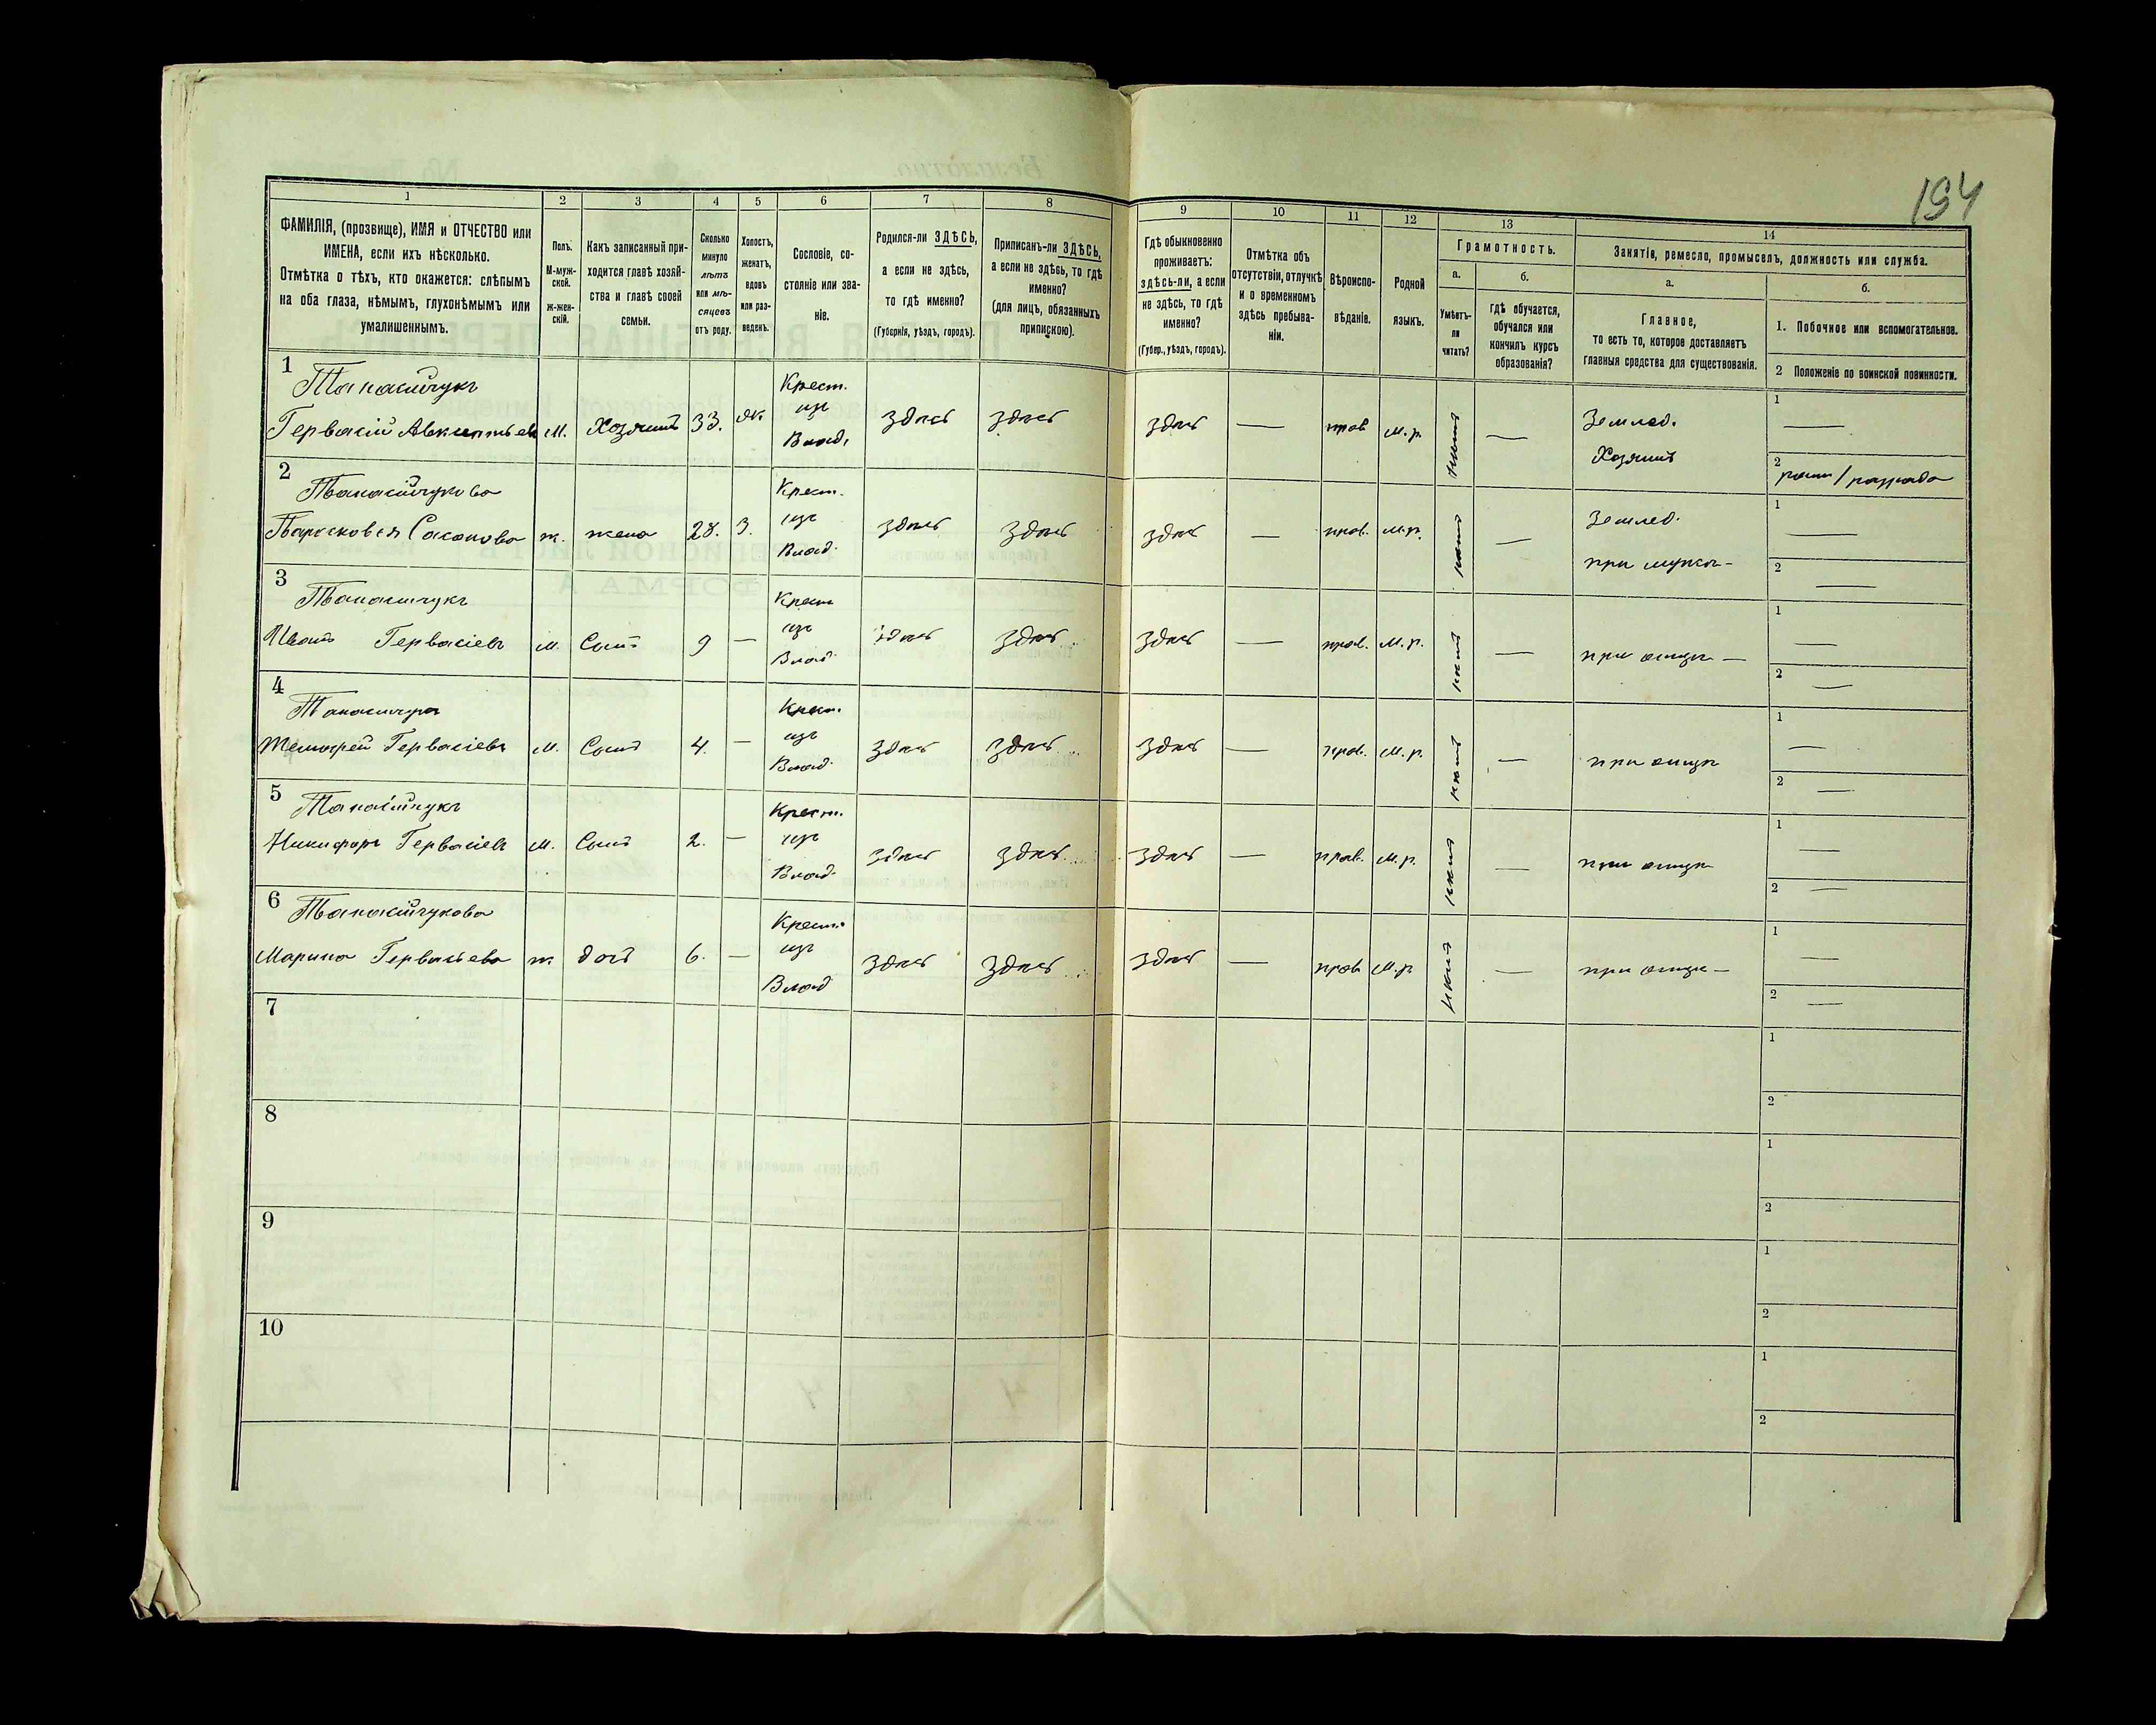 194
1
2
3
4
5
6
7
8
9
10
11
12
13
14
ФАМИЛІЯ, (прозвище), ИМЯ и ОТЧЕСТВО или
ИМЕНА, если ихъ нѣсколько.
Отмѣтка о тѣхъ, кто окажется: слѣпымъ
на оба глаза, нѣмымъ, глухонѣмымъ или
умалишеннымъ.
Полъ.
М-муж-
ской.
ж-жен-
скій.
Какъ записанный при-
ходится главѣ хозяй-
ства и главѣ своей
семьи.
Сколько
минуло
лѣтъ
или мѣ-
сяцевъ
отъ роду.
Холостъ,
женатъ,
вдовъ
или раз-
веденъ.
Сословіе, со-
стояніе или зва-
ніе.
Родился-ли ЗДѢСЬ,
а если не здѣсь,
то гдѣ именно?
(Губернія, уѣздъ, городъ).
Приписанъ-ли ЗДѢСЬ,
а если не здѣсь, то гдѣ
именно?
(для лицъ, обязанныхъ
припискою).
Гдѣ обыкновенно
проживаетъ:
здѣсь-ли, а если
не здѣсь, то гдѣ
именно?
(Губер., уѣздъ, городъ).
Отмѣтка объ
отсутствіи, отлучкѣ
и о временномъ
здѣсь пребыва-
ніи.
Вѣроиспо-
вѣданіе.
Родной
языкъ.
Грамотность.
а.
Умѣетъ-
ли
читать?
б.
гдѣ обучается,
обучался или
кончилъ курсъ
образованія?
Занятія, ремесло, промыселъ, должность или служба.
а.
Главное,
то есть то, которое доставляетъ
главныя средства для существованія.
б.
1. Побочное или вспомогательное.
2 Положеніе по воинской повинности.
1
Гервасій м. Хозяинъ 33. ж
Крест.
изъ
Влад.
здѣсь здѣсь здѣсь — прав м.р. —
Землед.
Хозяинъ
1 —
2
2
Парасковея ж. жена 28. З.
Крест.
изъ
Влад.
здѣсь здѣсь здѣсь — прав. м.р. —
Землед.
при мужѣ —
1 —
2 —
3
Иванъ Гервасіевъ м. Сынъ 9 —
Крест
изъ
Влад
здѣсь здѣсь здѣсь — прав. м.р. —
при отцѣ —
1 —
2 —
4
Гервасіевъ м. Сынъ 4. —
Крест.
изъ
Влад.
здѣсь здѣсь здѣсь — прав. м.р. —
при отцѣ
1 —
2 —
5
Никифоръ Гервасіевъ м. Сынъ 2. —
Крест.
изъ
Влад.
здѣсь здѣсь здѣсь — прав. м.р. —
при отцѣ
1 —
2 —
6
Марина Гервасьева ж дочь 6. —
Крест.
изъ
Влад
здѣсь здѣсь здѣсь — прав м.р —
при отцѣ —
1 —
2 —
7
1
2
8
1
2
9
1
2
10
1
2